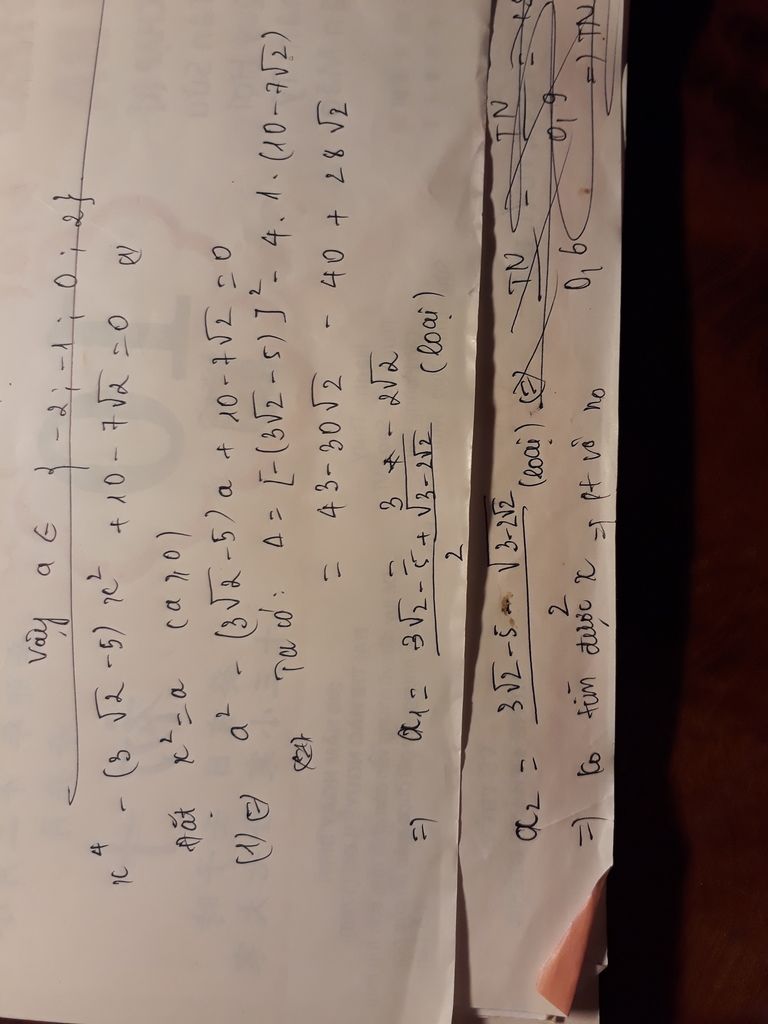 Vậy a ∈ { -2 ; -1 ; 0 ; 2 }
x⁴ - (3√2 - 5) x² + 10 - 7√2 = 0 (1)
Đặt x² = a (a ≥ 0)
(1) ⇔ a² - (3√2 - 5) a + 10 - 7√2 = 0
Ta có: Δ = [-(3√2 - 5)]² - 4 . 1 . (10 - 7√2)
= 43 - 30√2 - 40 + 28√2
= 3 - 2√2
⇒ a₁ = (3√2 - 5 + √(3 - 2√2)) / 2 (loại)
a₂ = (3√2 - 5 - √(3 - 2√2)) / 2 (loại)
⇒ ko tìm được x ⇒ pt vô no
TN - TN =
0,6 0,9
⇒ TN